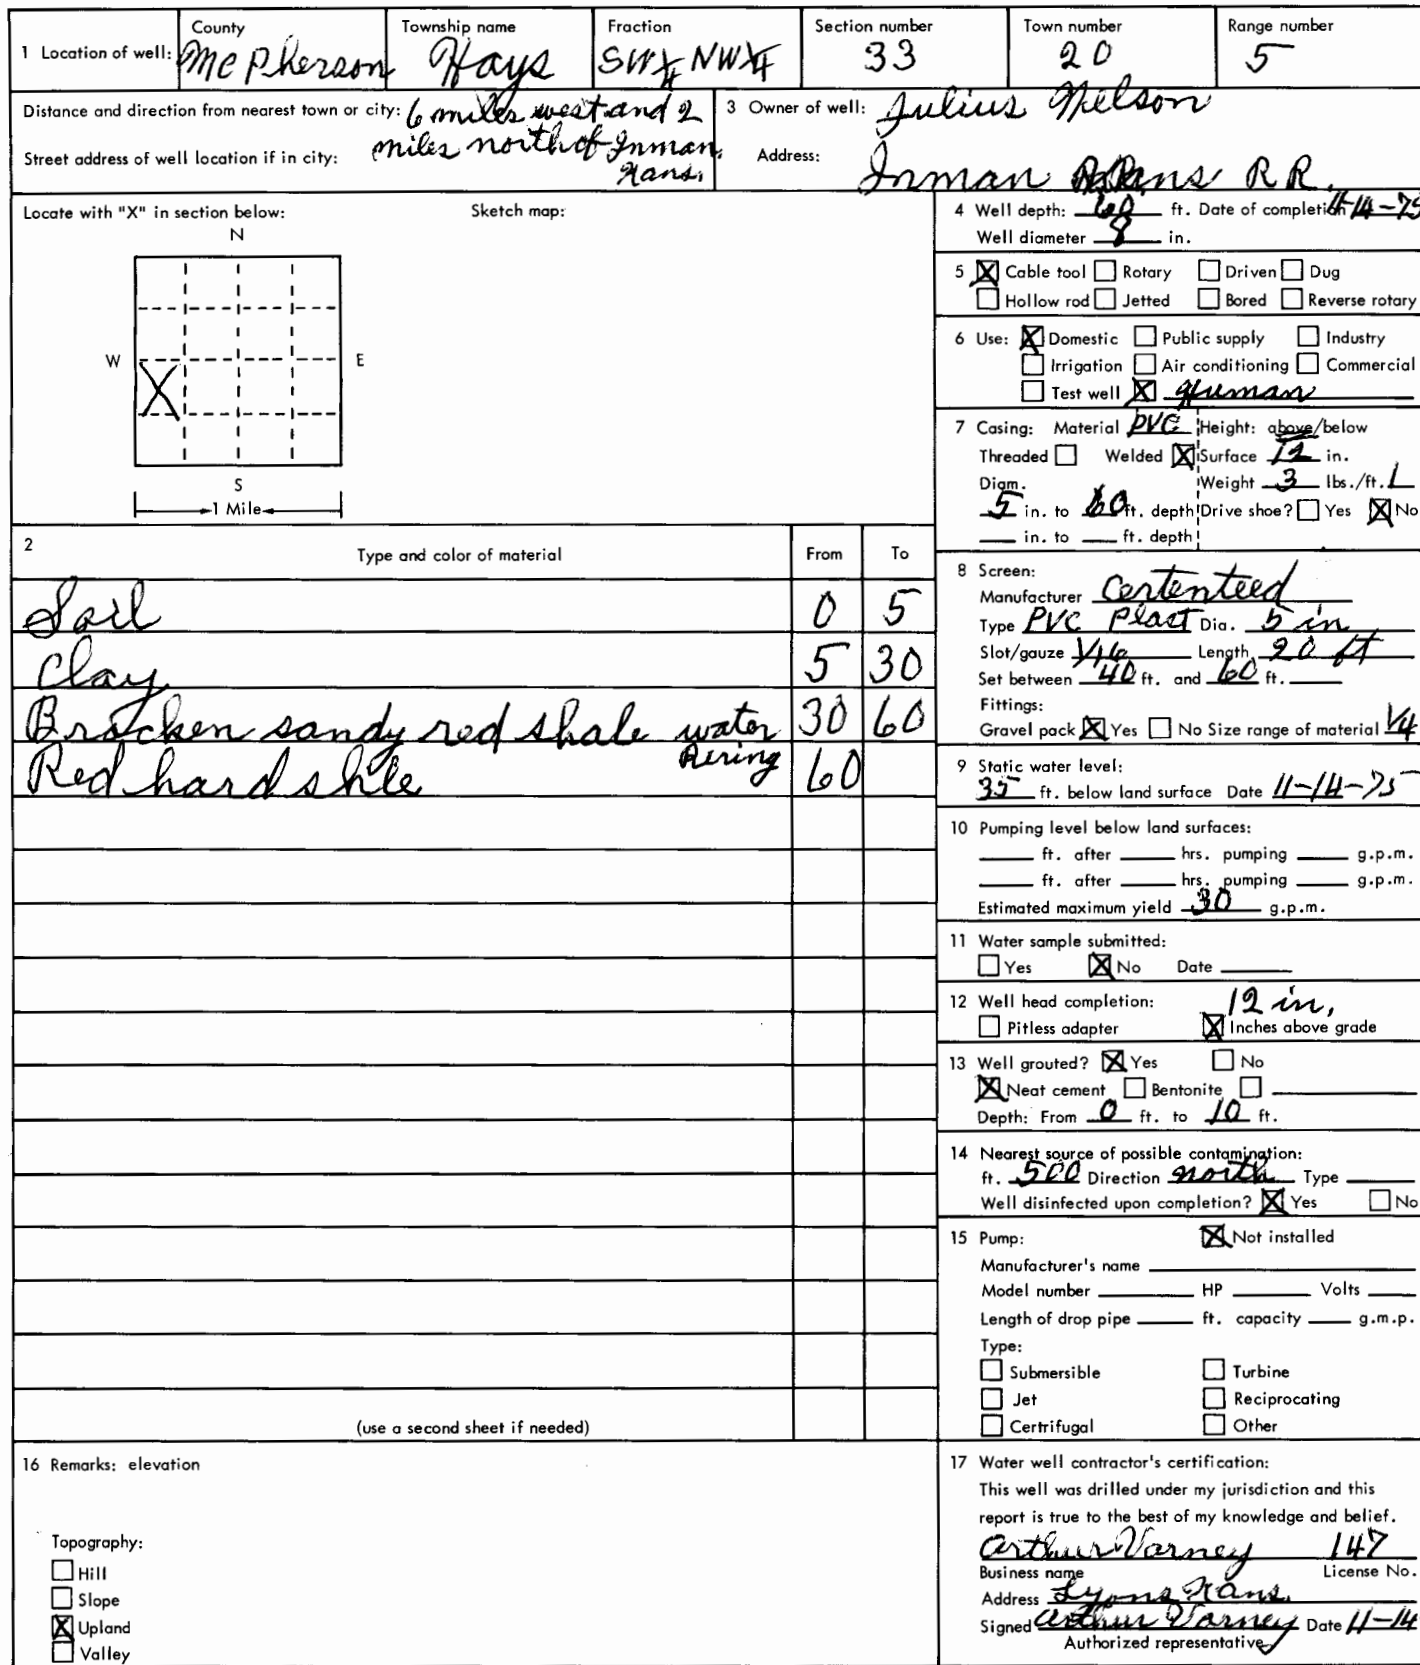 County Township name Fraction Section number Town number Range number
1 Location of well: McPherson Hays SW¼ NW¼ 33 20 5
Distance and direction from nearest town or city: 6 miles west and 2
miles north of Inman,
Kans.
Street address of well location if in city:
3 Owner of well: Julius Nelson
Address: Inman Kans R R.
Locate with "X" in section below: Sketch map:
N
W E
X
S
1 Mile
2 Type and color of material From To
Soil 0 5
Clay 5 30
Brocken sandy red shale water 30 60
Red hard shle 60
(use a second sheet if needed)
4 Well depth: 60 ft. Date of completion 11-14-75
Well diameter 8 in.
5 X Cable tool Rotary Driven Dug
Hollow rod Jetted Bored Reverse rotary
6 Use: X Domestic Public supply Industry
Irrigation Air conditioning Commercial
Test well X Human
7 Casing: Material PVC Height: above/below
Threaded Welded X Surface 12 in.
Diam. Weight 3 lbs./ft. 1
5 in. to 60 ft. depth Drive shoe? Yes X No
in. to ft. depth
8 Screen:
Manufacturer Certenteed
Type PVC Plast Dia. 5 in
Slot/gauze 1/16 Length 20 ft
Set between 40 ft. and 60 ft.
Fittings:
Gravel pack X Yes No Size range of material 1/4
9 Static water level:
35 ft. below land surface Date 11-14-75
10 Pumping level below land surfaces:
ft. after hrs. pumping g.p.m.
ft. after hrs. pumping g.p.m.
Estimated maximum yield 30 g.p.m.
11 Water sample submitted:
Yes X No Date
12 Well head completion: 12 in,
Pitless adapter X Inches above grade
13 Well grouted? X Yes No
X Neat cement Bentonite
Depth: From 0 ft. to 10 ft.
14 Nearest source of possible contamination:
ft. 500 Direction north Type
Well disinfected upon completion? X Yes No
15 Pump: X Not installed
Manufacturer's name
Model number HP Volts
Length of drop pipe ft. capacity g.m.p.
Type:
Submersible Turbine
Jet Reciprocating
Certrifugal Other
16 Remarks: elevation
Topography:
Hill
Slope
X Upland
Valley
17 Water well contractor's certification:
This well was drilled under my jurisdiction and this
report is true to the best of my knowledge and belief.
Arthur Varney 147
Business name License No.
Address Lyons Kans.
Signed Arthur Varney Date 11-14
Authorized representative